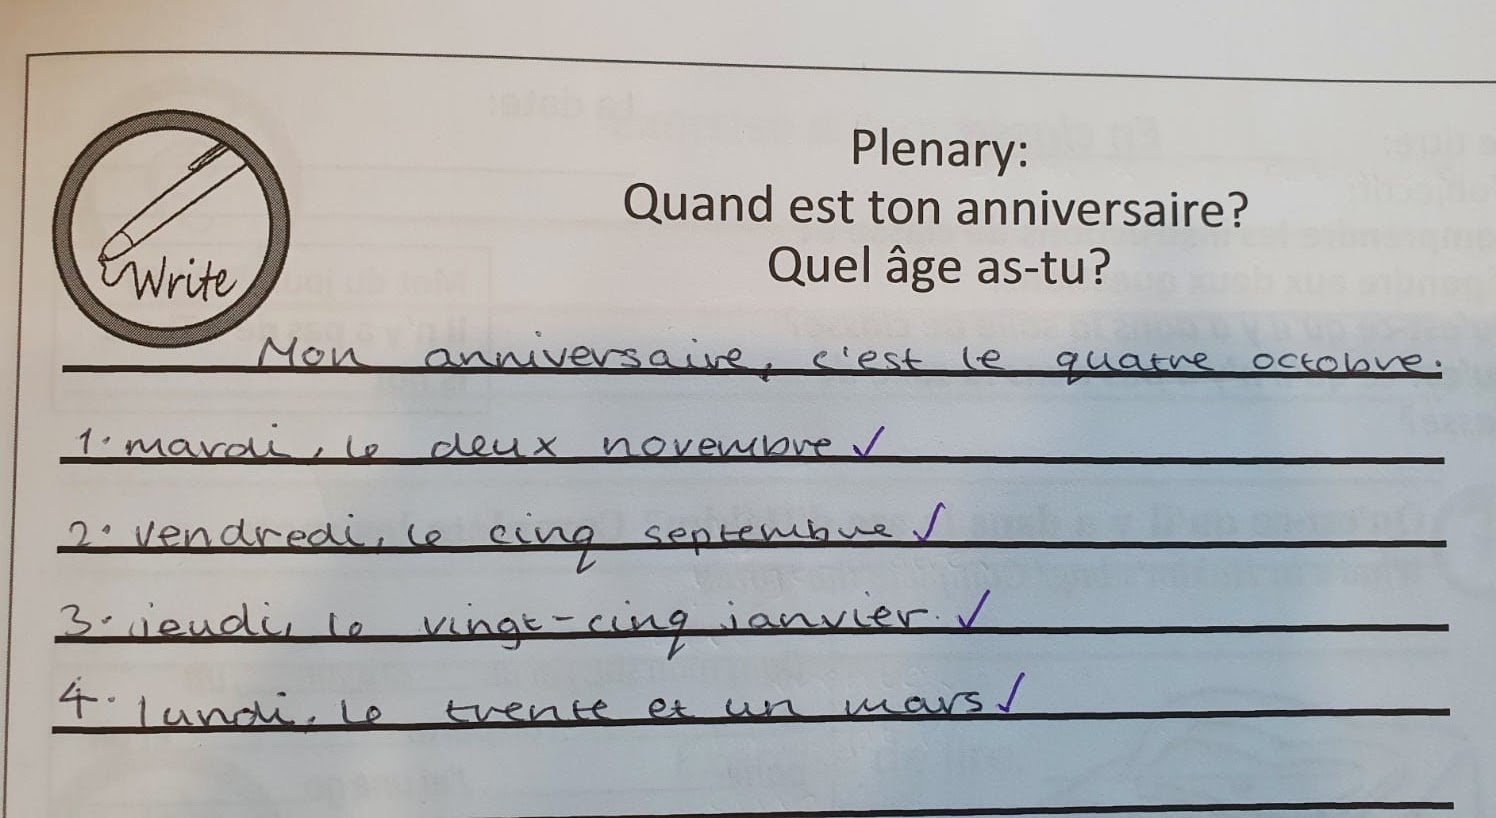 Plenary:
Quand est ton anniversaire?
Quel âge as-tu?
Write
Mon anniversaire, c'est le quatre octobre.
1. mardi, le deux novembre ✓
2. vendredi, le cinq septembre ✓
3. jeudi, le vingt-cinq janvier. ✓
4. lundi, le trente et un mars ✓